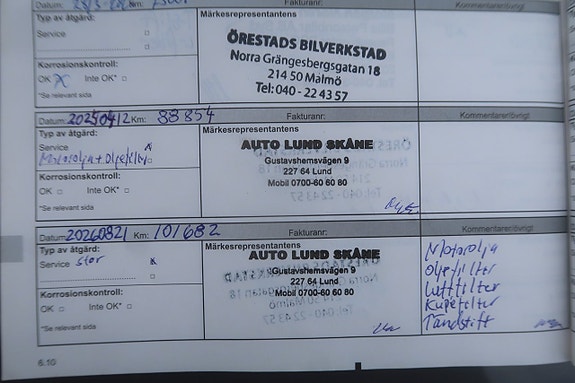 Datum: Km: Fakturanr: Kommentarer/övrigt
Typ av åtgärd:
Service
Märkesrepresentantens
ÖRESTADS BILVERKSTAD
Norra Grängesbergsgatan 18
214 50 Malmö
Tel: 040 - 22 43 57
Korrosionskontroll:
OK Inte OK*
*Se relevant sida
Datum: Km: 88854 Fakturanr: Kommentarer/övrigt
Typ av åtgärd:
Service
Motorolja + Oljefilter
Märkesrepresentantens
AUTO LUND SKÅNE
Gustavshemsvägen 9
227 64 Lund
Mobil 0700-60 60 80
Korrosionskontroll:
OK Inte OK*
*Se relevant sida
Datum: Km: 101682 Fakturanr: Kommentarer/övrigt
Typ av åtgärd:
Service stor
Märkesrepresentantens
AUTO LUND SKÅNE
Gustavshemsvägen 9
227 64 Lund
Mobil 0700-60 60 80
Korrosionskontroll:
OK Inte OK*
*Se relevant sida
Motorolja
Oljefilter
Luftfilter
Kupefilter
Tändstift
6:10